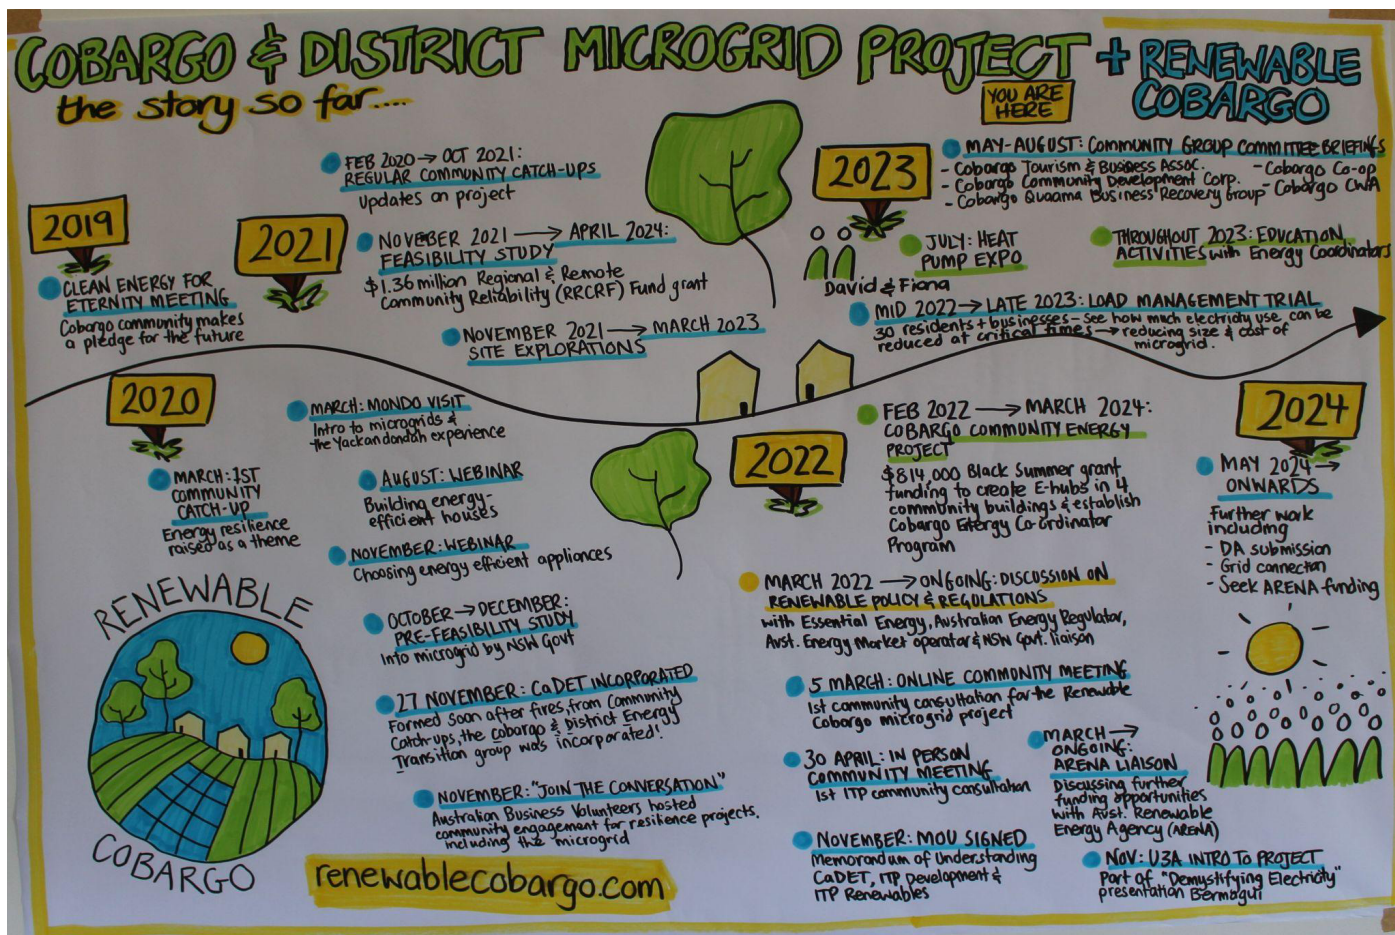 COBARGO & DISTRICT MICROGRID PROJECT + RENEWABLE COBARGO
the story so far....
YOU ARE
HERE
2019
CLEAN ENERGY FOR
ETERNITY MEETING
Cobargo community makes
a pledge for the future
2020
MARCH: 1ST
COMMUNITY
CATCH-UP
Energy resilience
raised as a theme
MARCH: MONDO VISIT
Intro to microgrids &
the Yackandandah experience
AUGUST: WEBINAR
Building energy-
efficient houses
NOVEMBER: WEBINAR
Choosing energy efficient appliances
OCTOBER → DECEMBER:
PRE-FEASIBILITY STUDY
Into microgrid by NSW Govt
27 NOVEMBER: CaDET INCORPORATED
Formed soon after fires, from Community
Catch-ups, the Cobargo & District Energy
Transition group was incorporated!
NOVEMBER: "JOIN THE CONVERSATION"
Australian Business Volunteers hosted
community engagement for resilience projects,
including the microgrid
FEB 2020 → OCT 2021:
REGULAR COMMUNITY CATCH-UPS
Updates on project
2021
NOVEBER 2021 → APRIL 2024:
FEASIBILITY STUDY
$1.36 million Regional & Remote
Community Reliability (RRCRF) Fund grant
NOVEMBER 2021 → MARCH 2023
SITE EXPLORATIONS
2022
FEB 2022 → MARCH 2024:
COBARGO COMMUNITY ENERGY
PROJECT
$814,000 Black Summer grant
funding to create E-hubs in 4
community buildings & establish
Cobargo Energy Co-ordinator
Program
MARCH 2022 → ONGOING: DISCUSSION ON
RENEWABLE POLICY & REGULATIONS
with Essential Energy, Australian Energy Regulator,
Aust. Energy Market operator & NSW Govt. liaison
5 MARCH: ONLINE COMMUNITY MEETING
1st community consultation for the Renewable
Cobargo microgrid project
30 APRIL: IN PERSON
COMMUNITY MEETING
1st ITP community consultation
NOVEMBER: MOU SIGNED
Memorandum of Understanding
CaDET, ITP Development &
ITP Renewables
MARCH →
ONGOING:
ARENA LIAISON
Discussing further
funding opportunities
with Aust. Renewable
Energy Agency (ARENA)
NOV: U3A INTRO TO PROJECT
Part of "Demystifying Electricity"
presentation Bermagui
2023
MAY-AUGUST: COMMUNITY GROUP COMMITTEE BRIEFINGS
- Cobargo Tourism & Business Assoc.
- Cobargo Community Development Corp.
- Cobargo Quaama Business Recovery Group
- Cobargo Co-op
- Cobargo CWA
David & Fiona
JULY: HEAT
PUMP EXPO
THROUGHOUT 2023: EDUCATION
ACTIVITIES with Energy Coordinators
MID 2022 → LATE 2023: LOAD MANAGEMENT TRIAL
30 residents + businesses - see how much electricity use can be
reduced at critical times → reducing size & cost of
microgrid.
2024
MAY 2024 →
ONWARDS
Further work
including
- DA submission
- Grid connection
- Seek ARENA funding
RENEWABLE
COBARGO
renewablecobargo.com